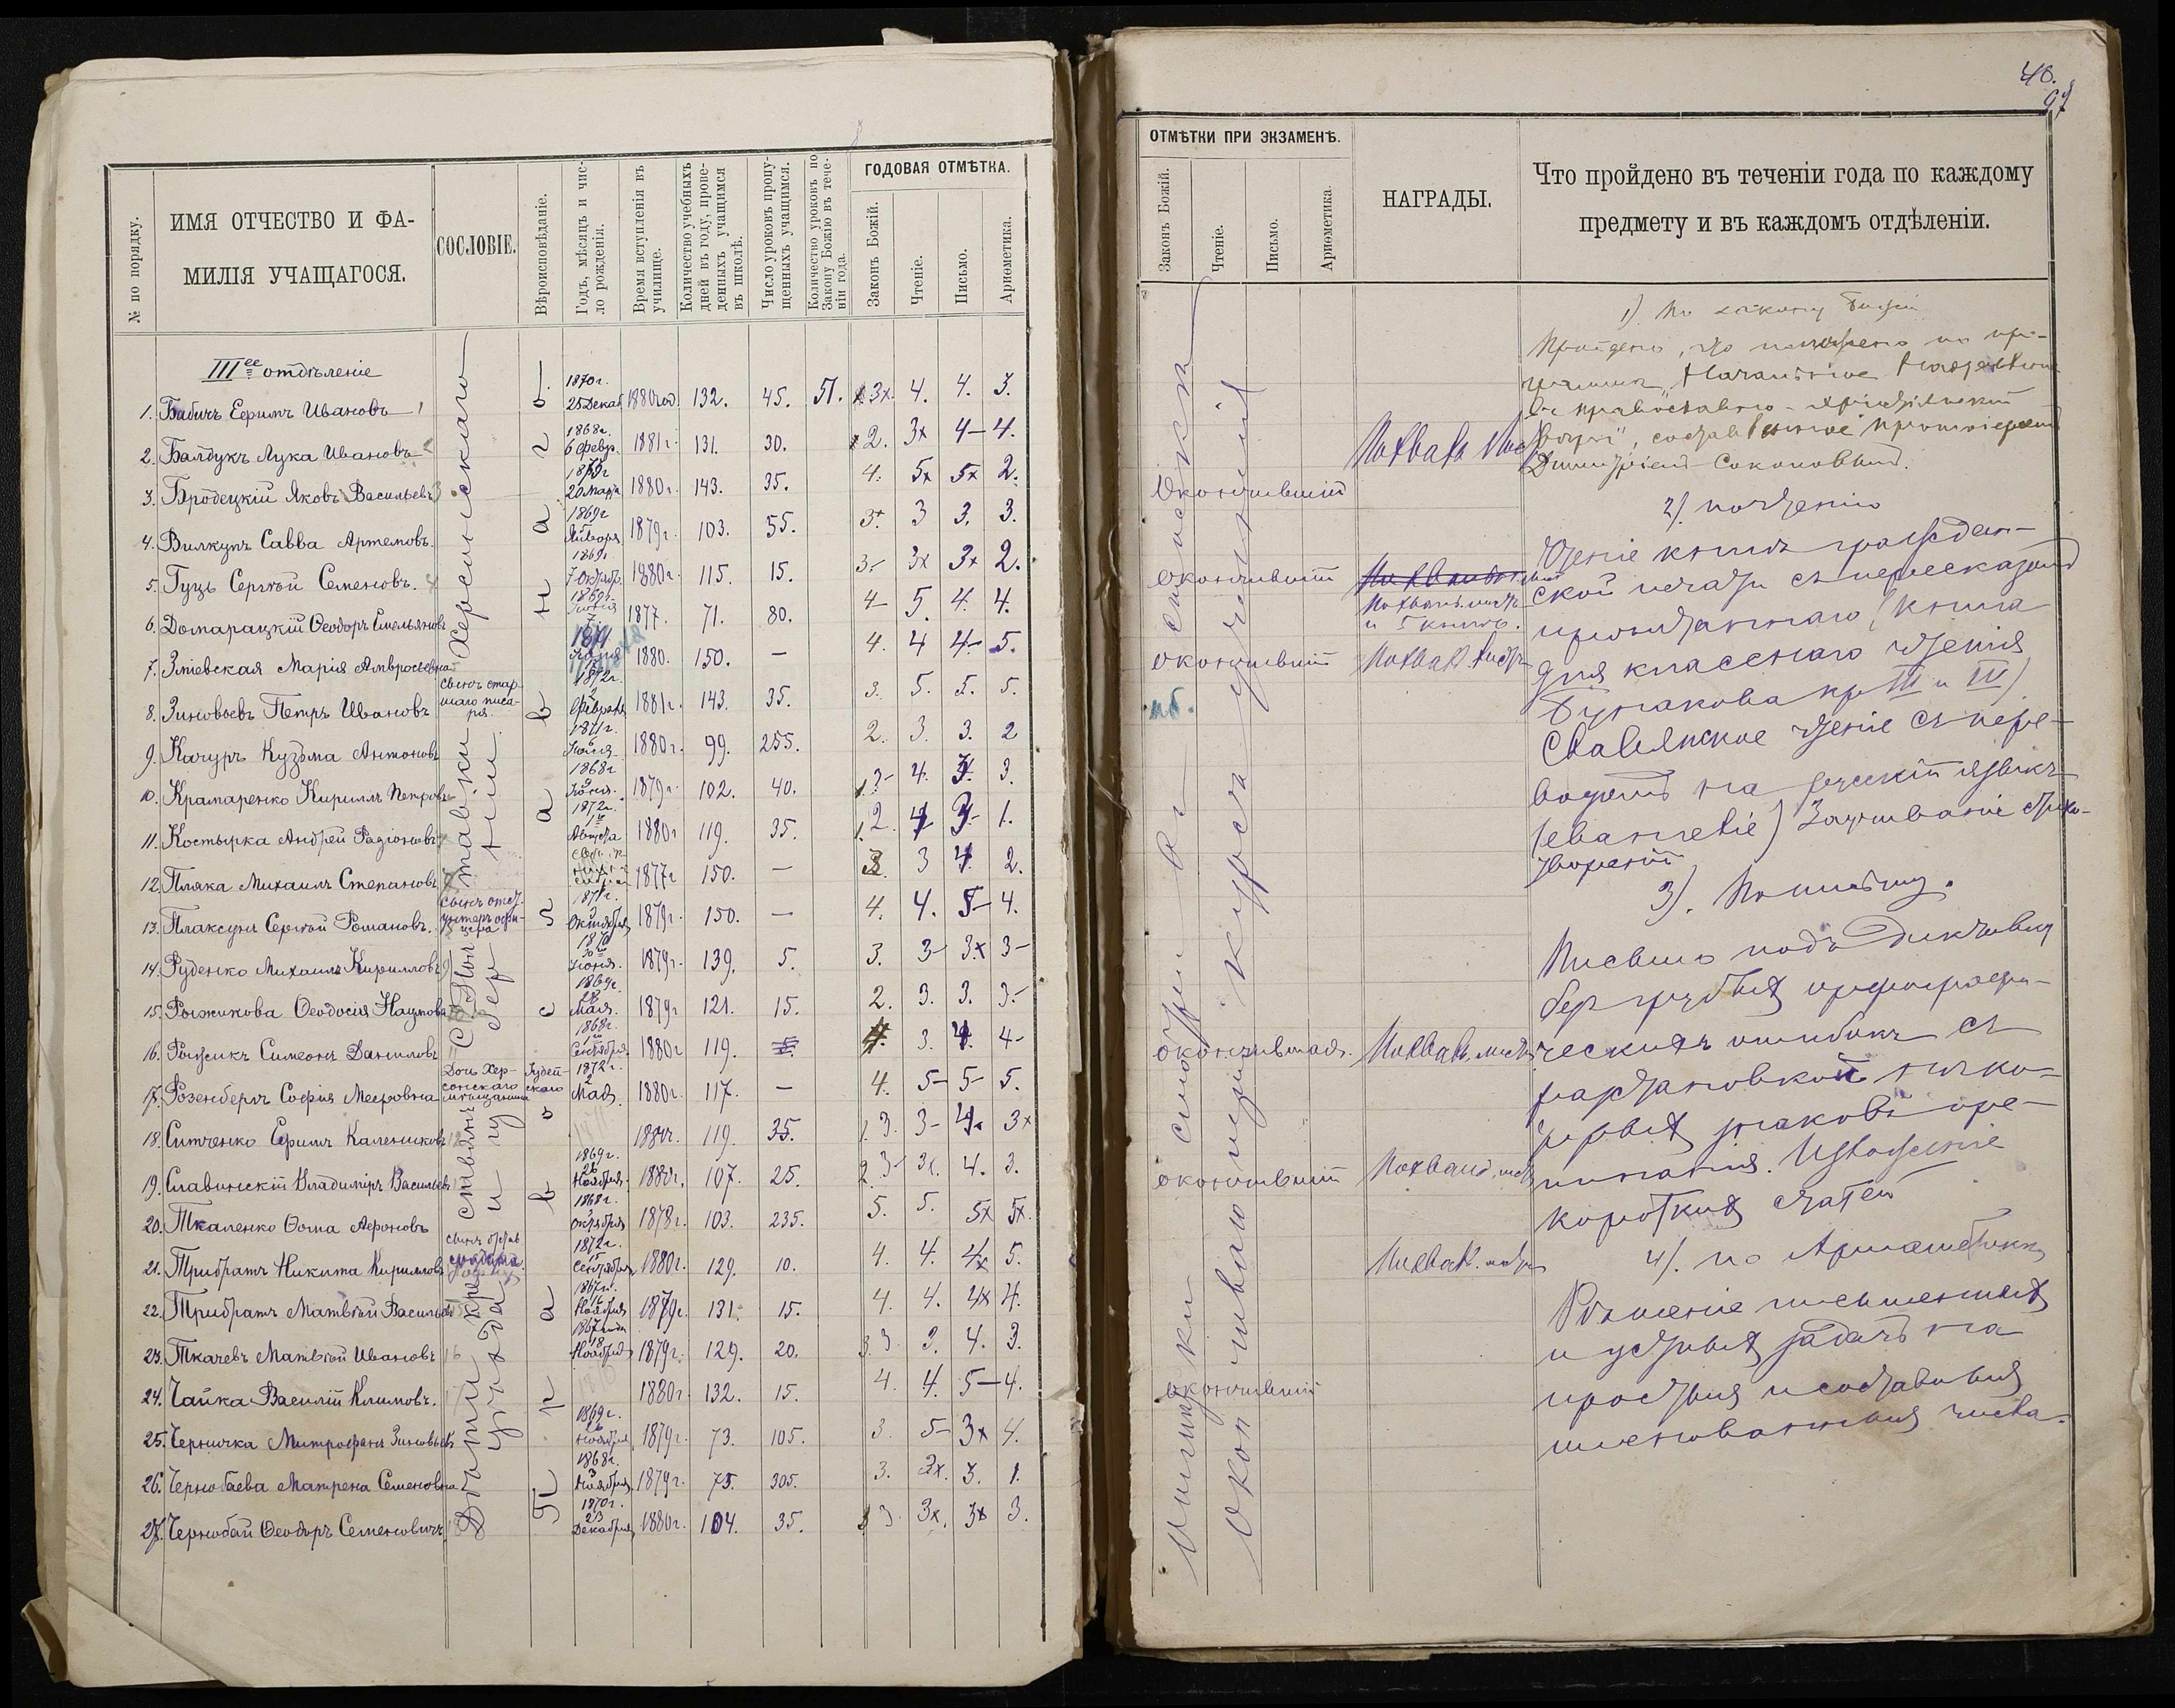 40.
97
№ по порядку.
ИМЯ ОТЧЕСТВО И ФА-
МИЛІЯ УЧАЩАГОСЯ.
СОСЛОВІЕ.
Вѣроисповѣданіе.
Годъ, мѣсяцъ и чис-
ло рожденія.
Время вступленія въ
училище.
Количество учебныхъ
дней въ году, прове-
денныхъ учащимся
въ школѣ.
Число уроковъ пропу-
щенныхъ учащимся.
Количество уроковъ по
Закону Божію въ тече-
ніи года.
ГОДОВАЯ ОТМѢТКА.
Законъ Божій.
Чтеніе.
Письмо.
Ариѳметика.
III ее отдѣленіе
1. Бабичъ Ефимъ Ивановъ 1870г. 25 Декаб. 1880 год. 132. 45. 51. 3х 4. 4. 3.
2. Балдукъ Лука Ивановъ 1868г. 6 февр. 1881г. 131. 30. 2. 3х 4- 4.
3. Бродецкій Яковъ Васильевъ 20 марта 1880г. 143. 35. 4. 5х 5х 2.
4. Вилкупъ Савва Артемовъ. 1869г Января 1879г. 103. 55. 3+ 3 3. 3.
5. Гуць Сергѣй Семеновъ. 1869г. 7 Октябр. 1880г. 115. 15. 3- 3х 3х 2.
6. Домарацкій Ѳеодоръ Емельяновъ 1877. 71. 80. 4- 5. 4. 4.
7. Зміевская Марія Амвросьевна 1880. 150. — 4. 4 4- 5.
8. Зиновьевъ Петръ Ивановъ сынъ стар-
шаго писа-
ря. 1872г. 2 Февраля 1881г. 143. 35. 3. 5. 5. 5.
9. Качуръ Кузьма Антоновъ 1871г. 1880г. 99. 255. 2. 3. 3. 2
10. Крамаренко Кириллъ Петровъ 1868г 1879г. 102. 40. 3- 4. 3. 3.
11. Костырка Андрей Радіоновъ 1872г. Августа 1880г 119. 35. 2 1.
12. Пляка Михаилъ Степановъ 1877г 150. — 3. 3 4. 2.
13. Плаксунъ Сергѣй Романовъ. сынъ отст.
унтеръ офи-
цера 1871г. Октября 1879г. 150. — 4. 4. 5- 4.
14. Руденко Михаилъ Кирилловъ 1870 Іюня. 1879г. 139. 5. 3. 3- 3.х 3-
15. Рыжикова Ѳеодосія Наумова 1869г. 28 Мая. 1879г 121. 15. 2. 3. 3. 3.-
16. Рыжикъ Симеонъ Даниловъ 1868г. Сентября. 1880г 119. 4. 3. 4. 4-
17. Розенбергъ Софія Мееровна Дочь Хер-
сонскаго
мѣщанина Іудей-
скаго 1872г. 2 Мая 1880г. 117. — 4. 5- 5- 5.
18. Ситченко Ефимъ Калениковъ 1880г. 119. 35. 3. 3- 4. 3х
19. Славинскій Владиміръ Васильевъ 1869г. 26 Ноября. 1880г. 107. 25. 3- 3х. 4. 3.
20. Ткаленко Ѳома Аѳроновъ 1868г. Октября 1878г. 103. 235. 5. 5. 5х 5х.
21. Трибратъ Никита Кириллов 1872г. 15 Сентября 1880г. 129. 10. 4. 4. 4х 5.
22. Трибратъ Матвѣй Васильевъ 1867г. 16 Ноября 1879г. 131. 15. 4. 4. 4х 4.
23. Ткачевъ Матвѣй Ивановъ 1867 года 18 Ноября 1879г. 129. 20. 3. 3. 4. 3.
24. Чайка Василій Климовъ. 1880г. 132. 15. 4. 4. 5- 4.
25. Черничка Митрофанъ Зиновьевъ 1869г. 26 Ноября 1879г. 73. 105. 3. 5- 3х 4.
26. Чернобаева Матрена Семеновна 1868г. 3 Ноября 1879г. 75. 305. 3. 3х. 3. 1.
27. Чернобай Ѳеодоръ Семеновичъ 1870г. 23 Декабря 1880г. 104. 35. 3. 3х. 3х 3.
Дѣти крестьянъ с. Станиславки Херсонскаго
уѣзда и губерніи.
Православнаго
ОТМѢТКИ ПРИ ЭКЗАМЕНѢ.
Законъ Божій.
Чтеніе.
Письмо.
Ариѳметика.
НАГРАДЫ.
Что пройдено въ теченіи года по каждому
предмету и въ каждомъ отдѣленіи.
Отмѣтки смотри въ спискѣ
окончившихъ курса ученія
Окончившій
окончившій
окончившій
окончившая.
окончившій
окончившій
Похвальн. листъ
и 5 книгъ.
Похвал. листъ
Похвал. листъ
Похвал. листъ
Похвал. листъ
1). По закону Божію
Пройдено, что положено по про-
граммѣ, Начальное наставленіе
въ православно-христіанской
вѣрѣ", составленное протоіереем
Димитріемъ Соколовымъ.
2). по чтенію
Чтеніе книгъ граждан-
ской печати съ пересказомъ
прочитаннаго, (книга
для класснаго чтенія
Бунакова кн. II и III)
Славянское чтеніе съ пере-
водомъ на русскій языкъ
(евангеліе) Заучиваніе стихо-
твореній
3). По письму.
Письмо подъ диктовку
безъ грубыхъ орфографи-
ческихъ ошибокъ съ
разстановкой нѣко-
торыхъ знаковъ пре-
пинанія. Изложеніе
короткихъ статей
4). по Ариѳметикѣ
Рѣшеніе письменныхъ
и устныхъ задачъ на
простыя и составныя
именованныя числа.